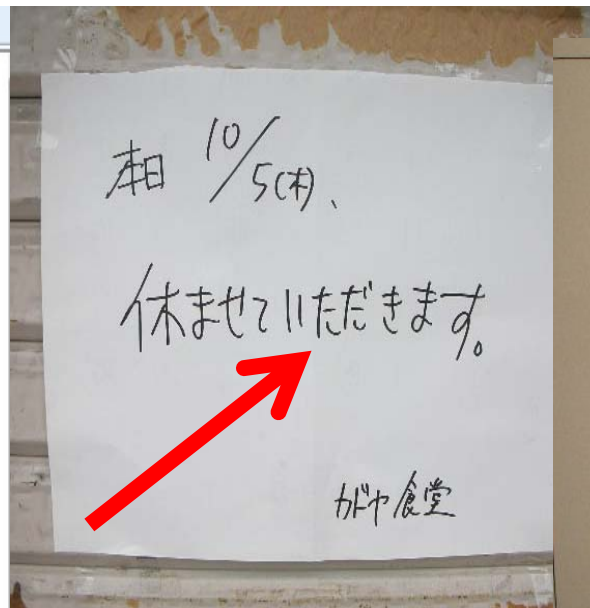 本日 10/5(木)、
休ませていただきます。
カドヤ食堂